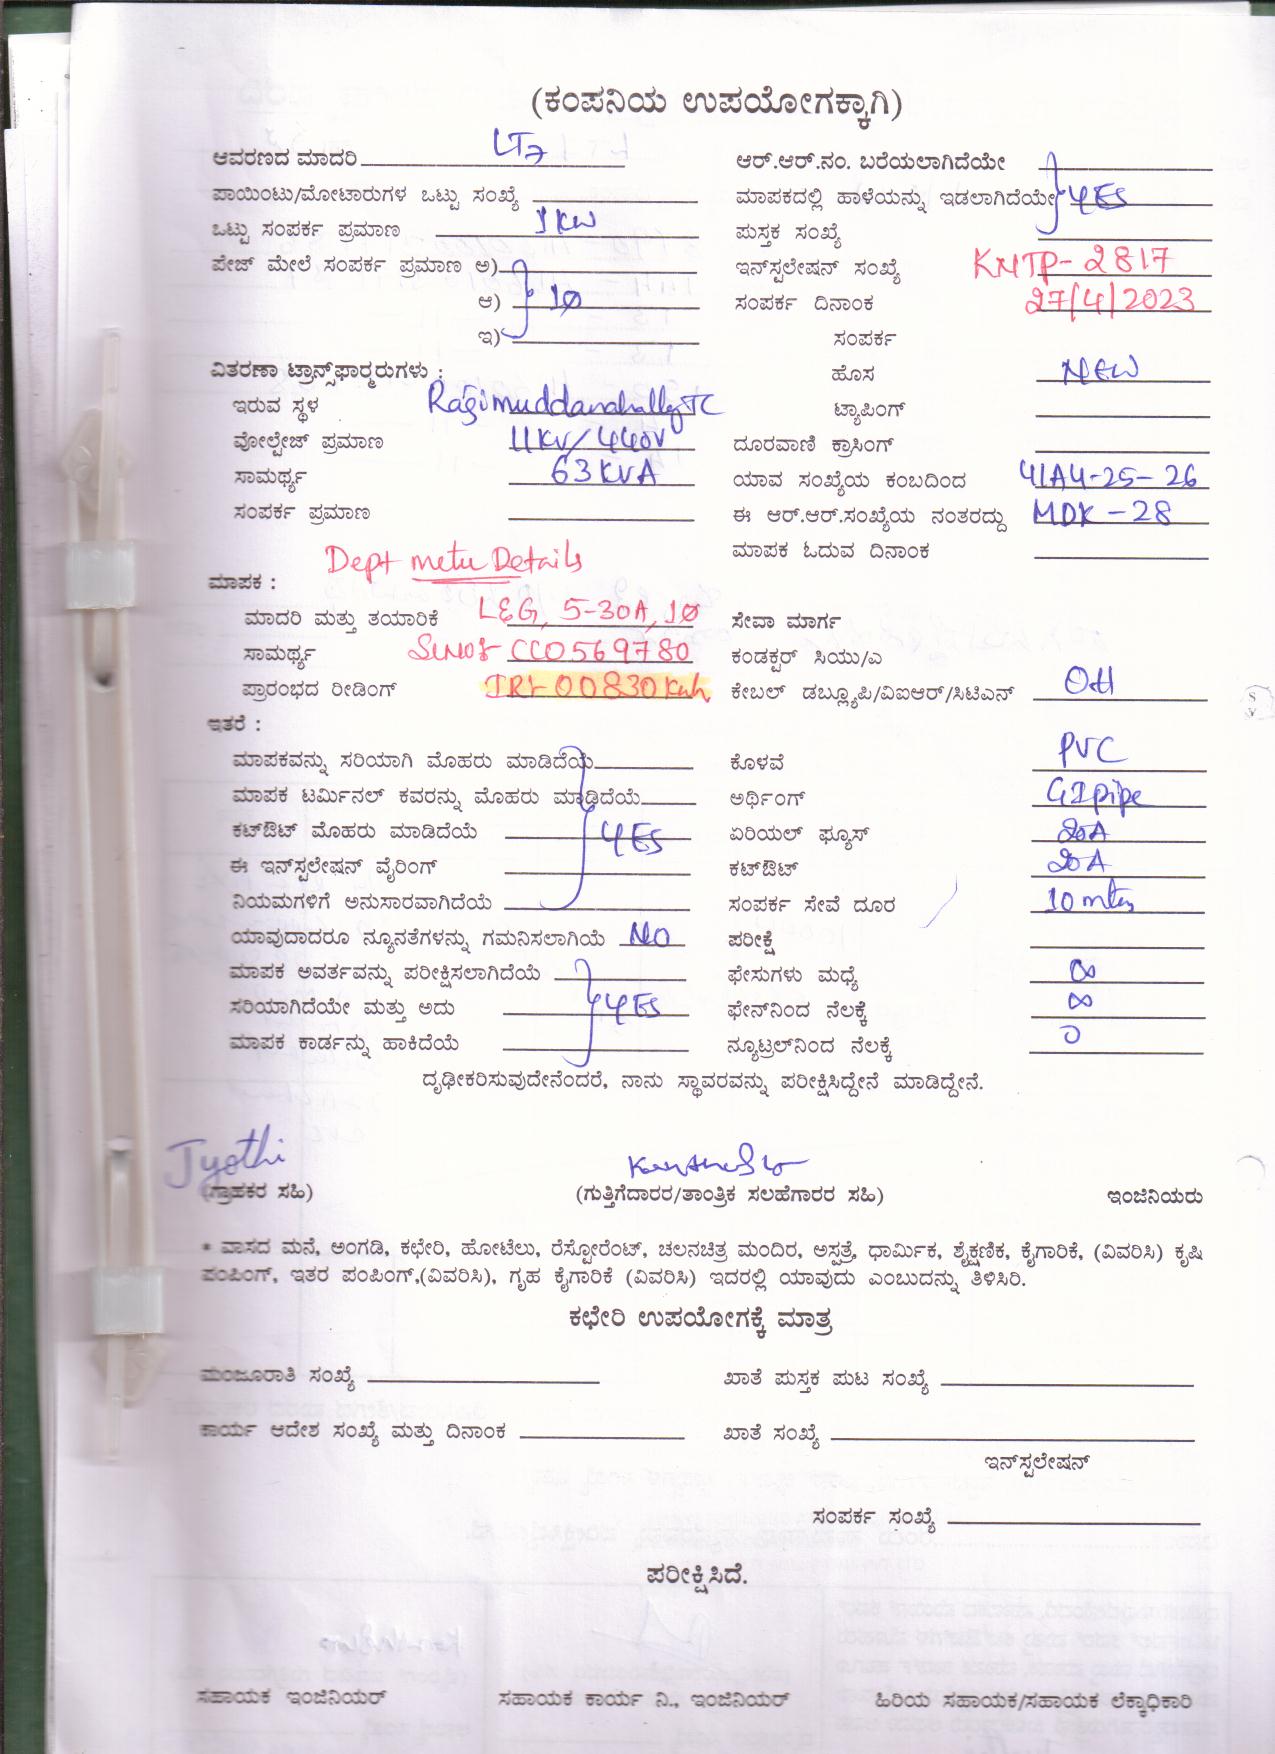 (ಕಂಪನಿಯ ಉಪಯೋಗಕ್ಕಾಗಿ)
ಆವರಣದ ಮಾದರಿ LT7
ಆರ್.ಆರ್.ನಂ. ಬರೆಯಲಾಗಿದೆಯೇ
ಪಾಯಿಂಟು/ಮೋಟಾರುಗಳ ಒಟ್ಟು ಸಂಖ್ಯೆ
ಮಾಪಕದಲ್ಲಿ ಹಾಳೆಯನ್ನು ಇಡಲಾಗಿದೆಯೇ YES
ಒಟ್ಟು ಸಂಪರ್ಕ ಪ್ರಮಾಣ 1KW
ಪುಸ್ತಕ ಸಂಖ್ಯೆ
ಪೇಜ್ ಮೇಲೆ ಸಂಪರ್ಕ ಪ್ರಮಾಣ ಅ)
ಇನ್‌ಸ್ಟಲೇಷನ್ ಸಂಖ್ಯೆ KNTP-2817
ಆ) 1Ø
ಸಂಪರ್ಕ ದಿನಾಂಕ 27/4/2023
ಇ)
ಸಂಪರ್ಕ
ವಿತರಣಾ ಟ್ರಾನ್ಸ್‌ಫಾರ್‍ಮರುಗಳು :
ಹೊಸ NEW
ಇರುವ ಸ್ಥಳ Ragimuddanahally TC
ಟ್ಯಾಪಿಂಗ್
ವೋಲ್ಟೇಜ್ ಪ್ರಮಾಣ 11KV/440V
ದೂರವಾಣಿ ಕ್ರಾಸಿಂಗ್
ಸಾಮರ್ಥ್ಯ 63KVA
ಯಾವ ಸಂಖ್ಯೆಯ ಕಂಬದಿಂದ 41A4-25-26
ಸಂಪರ್ಕ ಪ್ರಮಾಣ
ಈ ಆರ್.ಆರ್.ಸಂಖ್ಯೆಯ ನಂತರದ್ದು MDK-28
ಮಾಪಕ ಓದುವ ದಿನಾಂಕ
Dept meter Details
ಮಾಪಕ :
ಮಾದರಿ ಮತ್ತು ತಯಾರಿಕೆ L&G, 5-30A, 1Ø
ಸೇವಾ ಮಾರ್ಗ
ಸಾಮರ್ಥ್ಯ Slno: CC0569780
ಕಂಡಕ್ಟರ್ ಸಿಯು/ಎ
ಪ್ರಾರಂಭದ ರೀಡಿಂಗ್ IR: 00830 Kwh
ಕೇಬಲ್ ಡಬ್ಲ್ಯೂಪಿ/ವಿಐಆರ್/ಸಿಟಿಎನ್ OH
ಇತರೆ :
ಮಾಪಕವನ್ನು ಸರಿಯಾಗಿ ಮೊಹರು ಮಾಡಿದೆಯೆ
ಕೊಳವೆ PVC
ಮಾಪಕ ಟರ್ಮಿನಲ್ ಕವರನ್ನು ಮೊಹರು ಮಾಡಿದೆಯೆ
ಅರ್ಥಿಂಗ್ GI pipe
ಕಟ್‌ಔಟ್ ಮೊಹರು ಮಾಡಿದೆಯೆ YES
ಏರಿಯಲ್ ಫ್ಯೂಸ್ 20A
ಈ ಇನ್‌ಸ್ಟಲೇಷನ್ ವೈರಿಂಗ್
ಕಟ್‌ಔಟ್ 20A
ನಿಯಮಗಳಿಗೆ ಅನುಸಾರವಾಗಿದೆಯೆ
ಸಂಪರ್ಕ ಸೇವೆ ದೂರ 10 mtrs
ಯಾವುದಾದರೂ ನ್ಯೂನತೆಗಳನ್ನು ಗಮನಿಸಲಾಗಿಯೆ NO
ಪರೀಕ್ಷೆ
ಮಾಪಕ ಅವರ್ತವನ್ನು ಪರೀಕ್ಷಿಸಲಾಗಿದೆಯೆ
ಫೇಸುಗಳು ಮಧ್ಯೆ ∞
ಸರಿಯಾಗಿದೆಯೇ ಮತ್ತು ಅದು YES
ಫೇನ್‌ನಿಂದ ನೆಲಕ್ಕೆ ∞
ಮಾಪಕ ಕಾರ್ಡನ್ನು ಹಾಕಿದೆಯೆ
ನ್ಯೂಟ್ರಲ್‌ನಿಂದ ನೆಲಕ್ಕೆ 0
ದೃಢೀಕರಿಸುವುದೇನೆಂದರೆ, ನಾನು ಸ್ಥಾವರವನ್ನು ಪರೀಕ್ಷಿಸಿದ್ದೇನೆ ಮಾಡಿದ್ದೇನೆ.
Jyothi
(ಗ್ರಾಹಕರ ಸಹಿ) (ಗುತ್ತಿಗೆದಾರರ/ತಾಂತ್ರಿಕ ಸಲಹೆಗಾರರ ಸಹಿ) ಇಂಜಿನಿಯರು
* ವಾಸದ ಮನೆ, ಅಂಗಡಿ, ಕಛೇರಿ, ಹೋಟೆಲು, ರೆಸ್ಟೋರೆಂಟ್, ಚಲನಚಿತ್ರ ಮಂದಿರ, ಅಸ್ಪತ್ರೆ, ಧಾರ್ಮಿಕ, ಶೈಕ್ಷಣಿಕ, ಕೈಗಾರಿಕೆ, (ವಿವರಿಸಿ) ಕೃಷಿ
ಪಂಪಿಂಗ್, ಇತರ ಪಂಪಿಂಗ್,(ವಿವರಿಸಿ), ಗೃಹ ಕೈಗಾರಿಕೆ (ವಿವರಿಸಿ) ಇದರಲ್ಲಿ ಯಾವುದು ಎಂಬುದನ್ನು ತಿಳಿಸಿರಿ.
ಕಛೇರಿ ಉಪಯೋಗಕ್ಕೆ ಮಾತ್ರ
ಮಂಜೂರಾತಿ ಸಂಖ್ಯೆ
ಖಾತೆ ಪುಸ್ತಕ ಪುಟ ಸಂಖ್ಯೆ
ಕಾರ್ಯ ಆದೇಶ ಸಂಖ್ಯೆ ಮತ್ತು ದಿನಾಂಕ
ಖಾತೆ ಸಂಖ್ಯೆ
ಇನ್‌ಸ್ಟಲೇಷನ್
ಸಂಪರ್ಕ ಸಂಖ್ಯೆ
ಪರೀಕ್ಷಿಸಿದೆ.
ಸಹಾಯಕ ಇಂಜಿನಿಯರ್ ಸಹಾಯಕ ಕಾರ್ಯ ನಿ., ಇಂಜಿನಿಯರ್ ಹಿರಿಯ ಸಹಾಯಕ/ಸಹಾಯಕ ಲೆಕ್ಕಾಧಿಕಾರಿ